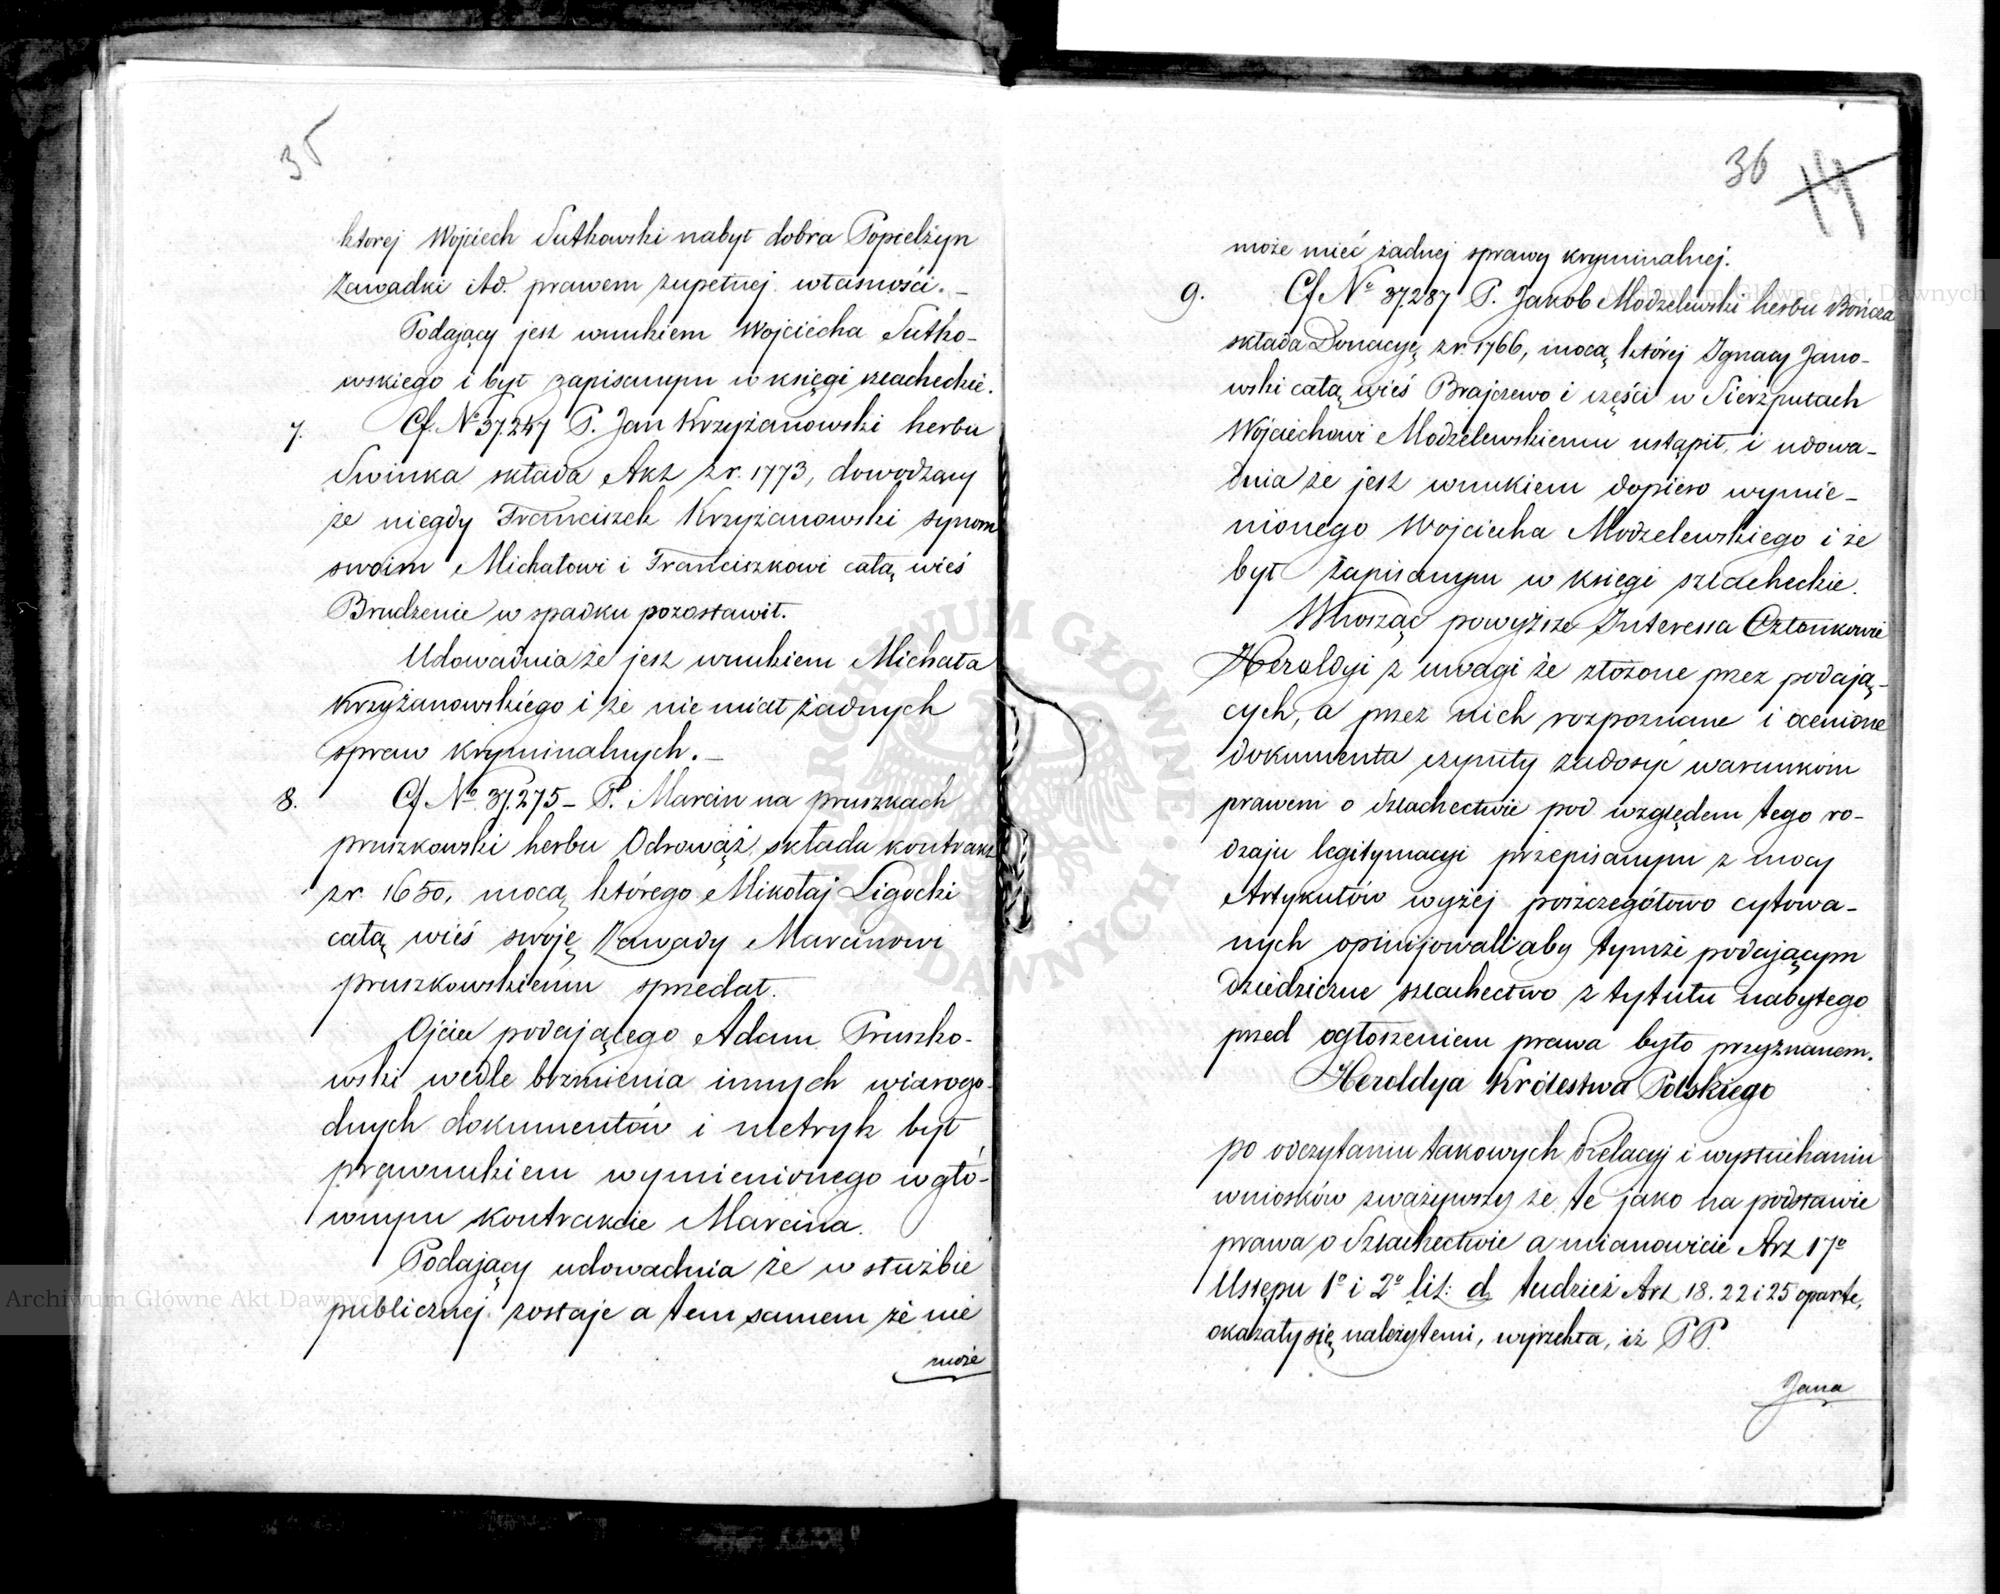 35
ktorej Wojciech Sutkowski nabył dobra Popielżyn
Zawadki itd. prawem zupełnej własności. _
Podający jest wnukiem Wojciecha Sutko-
wskiego i był zapisanym w księgi szlacheckie.
7. Cf. Nº 37.257 P. Jan Krzyżanowski herbu
Swinka składa Akt z r. 1773, dowodzący
że niegdy Franciszek Krzyżanowski synom
swoim Michałowi i Franciszkowi całą wieś
Brudzenie w spadku pozostawił.
Udowadnia że jest wnukiem Michała
Krzyżanowskiego i że nie miał żadnych
spraw kryminalnych. _
8. Cf Nº 37.275 _ P. Marcin na pruszkach
pruszkowski herbu Odrowąż składa kontrakt
z r. 1650, mocą którego Mikołaj Ligocki
całą wieś swoję Zawady Marcinowi
pruszkowskiemu sprzedał.
Ojciec podającego Adam Pruszko-
wski wedle brzmienia innych wiarogo-
dnych dokumentów i metryk był
prawnukiem wymienionego w głó-
wnym kontrakcie Marcina.
Podający udowadnia że w służbie
publicznej zostaje a tem samem że nie
może
36 14
może mieć żadnej sprawy kryminalnej.
9. Cf Nº 37.287 P. Jakob Modzelewski herbu Bończa
składa Donacyę z r. 1766, mocą której Ignacy Jano-
wski całą wieś Brajczewo i części w Sierzputach
Wojciechowi Modzelewskiemu ustąpił, i udowa-
dnia że jest wnukiem dopiero wymie-
nionego Wojciecha Modzelewskiego i że
był zapisanym w księgi szlacheckie.
Wnosząc powyższe Interessa Członkowie
Heroldyi z uwagi że złożone przez podają-
cych, a przez nich rozpoznane i ocenione
dokumenta czyniły zadosyć warunkom
prawem o Szlachectwie pod względem tego ro-
dzaju legitymacyi przepisanym z mocy
Artykułów wyżej poszczegółowo cytowa-
nych opinijowali aby tymże podającym
Dziedziczne szlachectwo z tytułu nabytego
przed ogłoszeniem prawa było przyznanem.
Heroldya Królestwa Polskiego
po odczytaniu takowych Relacyj i wysłuchaniu
wniosków zważywszy że te jako na podstawie
prawa o Szlachectwie a mianowicie Art 17º
Ustępu 1º i 2º lit: d tudzież Art 18. 22 i 25 oparte,
okazały się należytemi, wyrzekła, iż PP.
Jana
Archiwum Główne Akt Dawnych
Archiwum Główne Akt Dawnych
ARCHIWUM GŁÓWNE AKT DAWNYCH